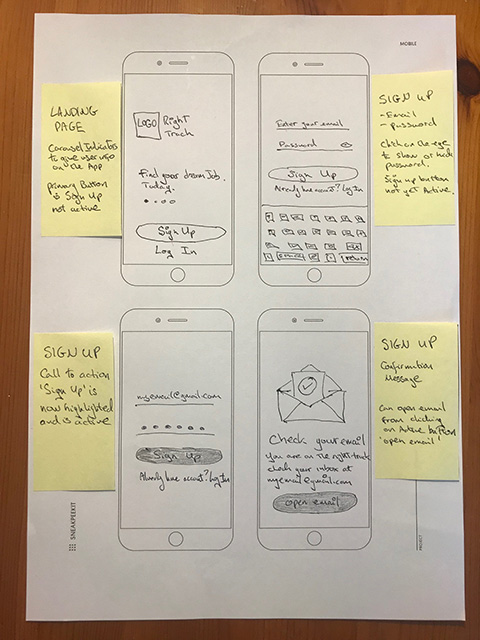 MOBILE
LANDING
PAGE
Carousel Indicators
to give user info
on the App
Primary Button
is Sign Up
not active
LOGO
Right
Track
Find your dream Job.
Today.
Sign Up
Log In
Enter your email
Password
Sign Up
Already have account? Log In
return
SIGN UP
- Email
- Password
click on the eye
to show or hide
password.
Sign up button
not yet Active.
SIGN UP
Call to action
'Sign Up' is
now highlighted
and is active
myemail@gmail.com
Sign Up
Already have account? Log In
Check your email
You are on the right track
check your inbox at
myemail@gmail.com
open email
SIGN UP
Confirmation
Message
Can open email
from clicking
on Active button
'open email'
SNEAKPEEKIT
PROJECT